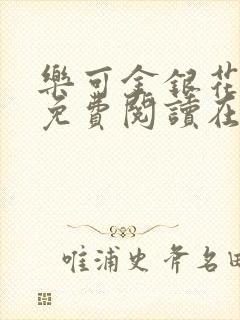 樂可金銀花
免費閱讀在
唯浦史斧名田